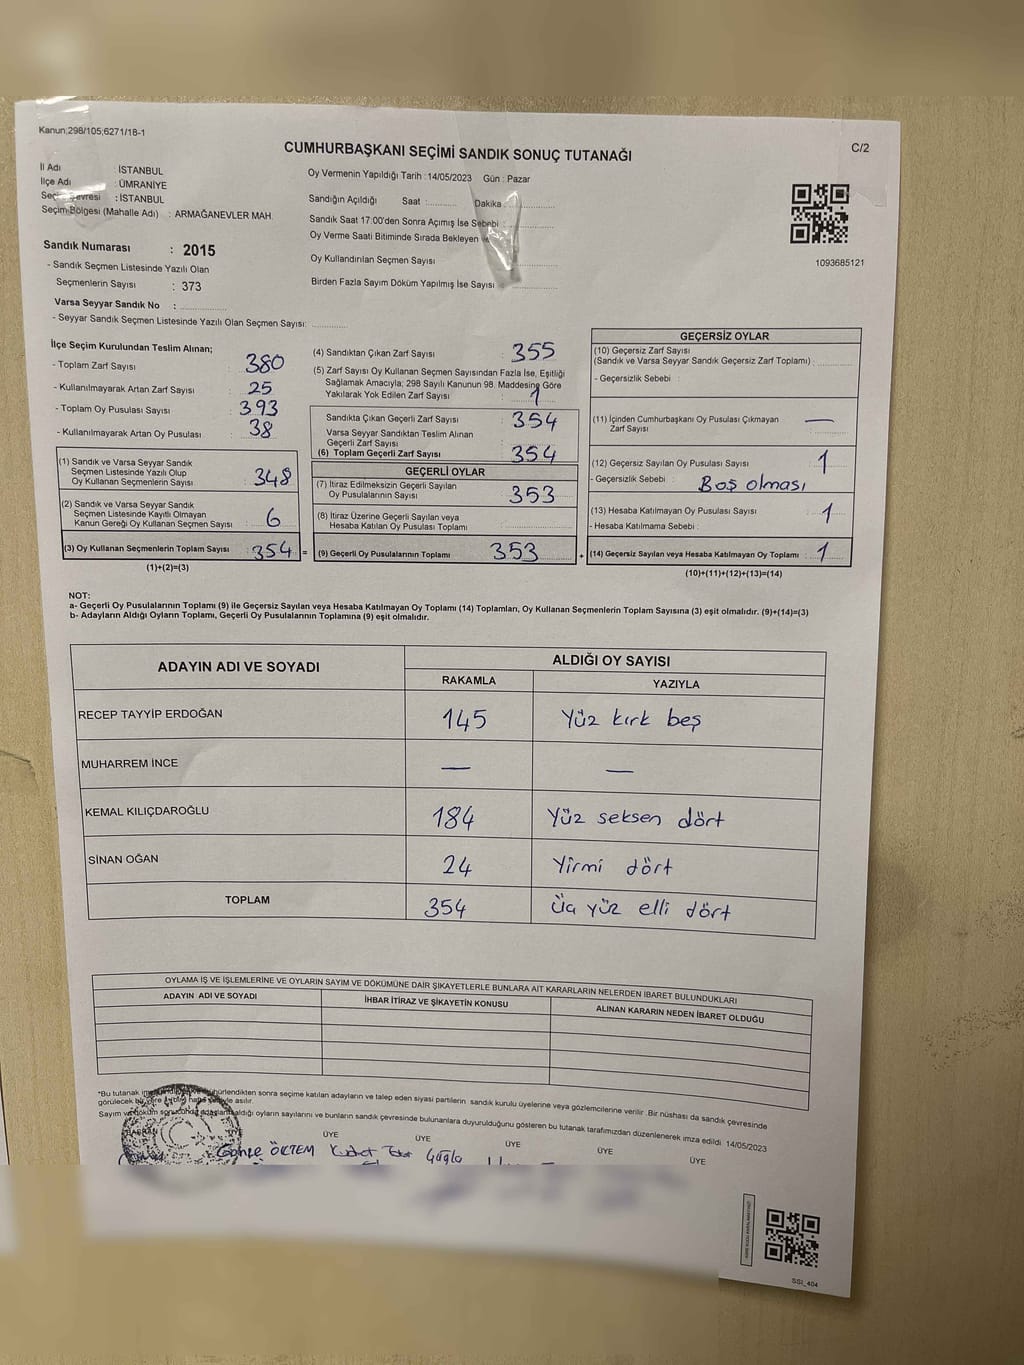 Kanun;298/105;6271/18-1
CUMHURBAŞKANI SEÇİMİ SANDIK SONUÇ TUTANAĞI
C/2
İl Adı : İSTANBUL
İlçe Adı : ÜMRANİYE
Seçim Çevresi : İSTANBUL
Seçim Bölgesi (Mahalle Adı) : ARMAĞANEVLER MAH.
Oy Vermenin Yapıldığı Tarih :14/05/2023 Gün : Pazar
Sandığın Açıldığı Saat :.......... Dakika :
Sandık Saat 17:00'den Sonra Açımış İse Sebebi :
Oy Verme Saati Bitiminde Sırada Bekleyen ve
Oy Kullandırılan Seçmen Sayısı
Birden Fazla Sayım Döküm Yapılmış İse Sayısı :
1093685121
Sandık Numarası : 2015
- Sandık Seçmen Listesinde Yazılı Olan
Seçmenlerin Sayısı : 373
Varsa Seyyar Sandık No :
- Seyyar Sandık Seçmen Listesinde Yazılı Olan Seçmen Sayısı:
İlçe Seçim Kurulundan Teslim Alınan;
- Toplam Zarf Sayısı : 380
- Kullanılmayarak Artan Zarf Sayısı : 25
- Toplam Oy Pusulası Sayısı : 393
- Kullanılmayarak Artan Oy Pusulası : 38
(1) Sandık ve Varsa Seyyar Sandık
Seçmen Listesinde Yazılı Olup
Oy Kullanan Seçmenlerin Sayısı : 348
(2) Sandık ve Varsa Seyyar Sandık
Seçmen Listesinde Kayıtlı Olmayan
Kanun Gereği Oy Kullanan Seçmen Sayısı : 6
(3) Oy Kullanan Seçmenlerin Toplam Sayısı : 354 =
(1)+(2)=(3)
(4) Sandıktan Çıkan Zarf Sayısı : 355
(5) Zarf Sayısı Oy Kullanan Seçmen Sayısından Fazla İse, Eşitliği
Sağlamak Amacıyla; 298 Sayılı Kanunun 98. Maddesine Göre
Yakılarak Yok Edilen Zarf Sayısı : 1
Sandıkta Çıkan Geçerli Zarf Sayısı : 354
Varsa Seyyar Sandıktan Teslim Alınan
Geçerli Zarf Sayısı
(6) Toplam Geçerli Zarf Sayısı : 354
GEÇERLİ OYLAR
(7) İtiraz Edilmeksizin Geçerli Sayılan
Oy Pusulalarının Sayısı : 353
(8) İtiraz Üzerine Geçerli Sayılan veya
Hesaba Katılan Oy Pusulası Toplamı :
(9) Geçerli Oy Pusulalarının Toplamı : 353 +
GEÇERSİZ OYLAR
(10) Geçersiz Zarf Sayısı
(Sandık ve Varsa Seyyar Sandık Geçersiz Zarf Toplamı) :
- Geçersizlik Sebebi :
(11) İçinden Cumhurbaşkanı Oy Pusulası Çıkmayan
Zarf Sayısı : —
(12) Geçersiz Sayılan Oy Pusulası Sayısı : 1
- Geçersizlik Sebebi : Boş olması
(13) Hesaba Katılmayan Oy Pusulası Sayısı : 1
- Hesaba Katılmama Sebebi :
(14) Geçersiz Sayılan veya Hesaba Katılmayan Oy Toplamı : 1
(10)+(11)+(12)+(13)=(14)
NOT:
a- Geçerli Oy Pusulalarının Toplamı (9) ile Geçersiz Sayılan veya Hesaba Katılmayan Oy Toplamı (14) Toplamları, Oy Kullanan Seçmenlerin Toplam Sayısına (3) eşit olmalıdır. (9)+(14)=(3)
b- Adayların Aldığı Oyların Toplamı, Geçerli Oy Pusulalarının Toplamına (9) eşit olmalıdır.
ADAYIN ADI VE SOYADI ALDIĞI OY SAYISI
RAKAMLA YAZIYLA
RECEP TAYYİP ERDOĞAN 145 Yüz kırk beş
MUHARREM İNCE — —
KEMAL KILIÇDAROĞLU 184 Yüz seksen dört
SİNAN OĞAN 24 Yirmi dört
TOPLAM 354 Üç yüz elli dört
OYLAMA İŞ VE İŞLEMLERİNE VE OYLARIN SAYIM VE DÖKÜMÜNE DAİR ŞİKAYETLERLE BUNLARA AİT KARARLARIN NELERDEN İBARET BULUNDUKLARI
ADAYIN ADI VE SOYADI İHBAR İTİRAZ VE ŞİKAYETİN KONUSU ALINAN KARARIN NEDEN İBARET OLDUĞU
*Bu tutanak mühürlendikten sonra seçime katılan adayların ve talep eden siyasi partilerin sandık kurulu üyelerine veya gözlemcilerine verilir. Bir nüshası da sandık çevresinde
görülecek bir yere asılır.
Sayım ve döküm sonucunda adayların aldığı oyların sayılarını ve bunların sandık çevresinde bulunanlara duyurulduğunu gösteren bu tutanak tarafımızdan düzenlenerek imza edildi. 14/05/2023
ÜYE ÜYE ÜYE ÜYE ÜYE
ÖKTEM
SSI_404